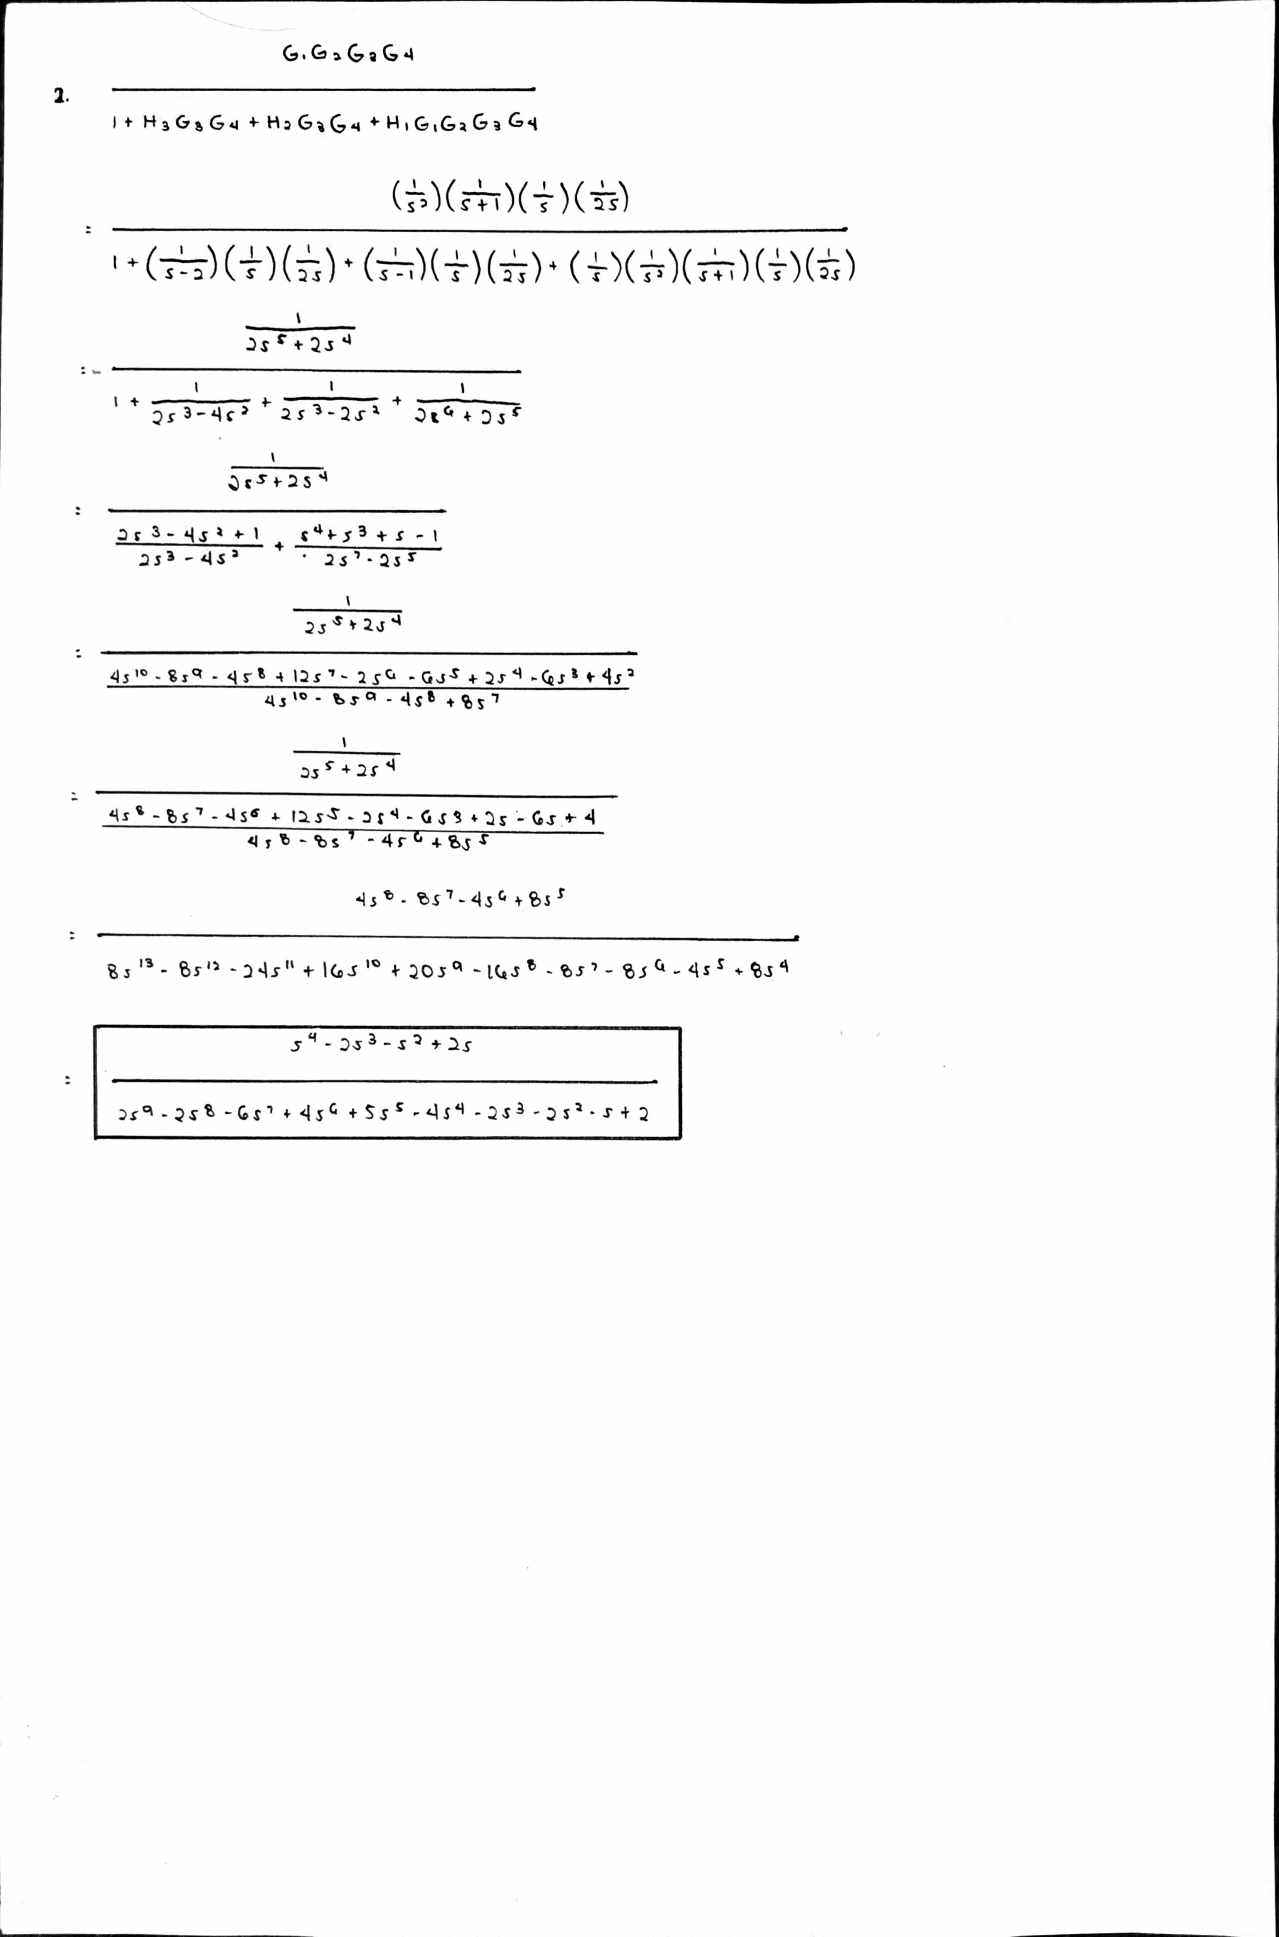 2.
G₁G₂G₃G₄
1 + H₃G₃G₄ + H₂G₃G₄ + H₁G₁G₂G₃G₄
= (1/s²)(1/s+1)(1/s)(1/2s)
1 + (1/s-2)(1/s)(1/2s) + (1/s-1)(1/s)(1/2s) + (1/s)(1/s²)(1/s+1)(1/s)(1/2s)
= 1/2s⁵ + 2s⁴
1 + 1/2s³-4s² + 1/2s³-2s² + 1/2s⁶+2s⁵
= 1/2s⁵+2s⁴
2s³-4s²+1/2s³-4s² + s⁴+s³+s-1/2s⁷-2s⁵
= 1/2s⁵+2s⁴
4s¹⁰-8s⁹-4s⁸+12s⁷-2s⁶-6s⁵+2s⁴-6s³+4s²
4s¹⁰-8s⁹-4s⁸+8s⁷
= 1/2s⁵+2s⁴
4s⁸-8s⁷-4s⁶+12s⁵-2s⁴-6s³+2s-6s+4
4s⁸-8s⁷-4s⁶+8s⁵
= 4s⁸-8s⁷-4s⁶+8s⁵
8s¹³-8s¹²-24s¹¹+16s¹⁰+20s⁹-16s⁸-8s⁷-8s⁶-4s⁵+8s⁴
= s⁴-2s³-s²+2s
2s⁹-2s⁸-6s⁷+4s⁶+5s⁵-4s⁴-2s³-2s²-s+2